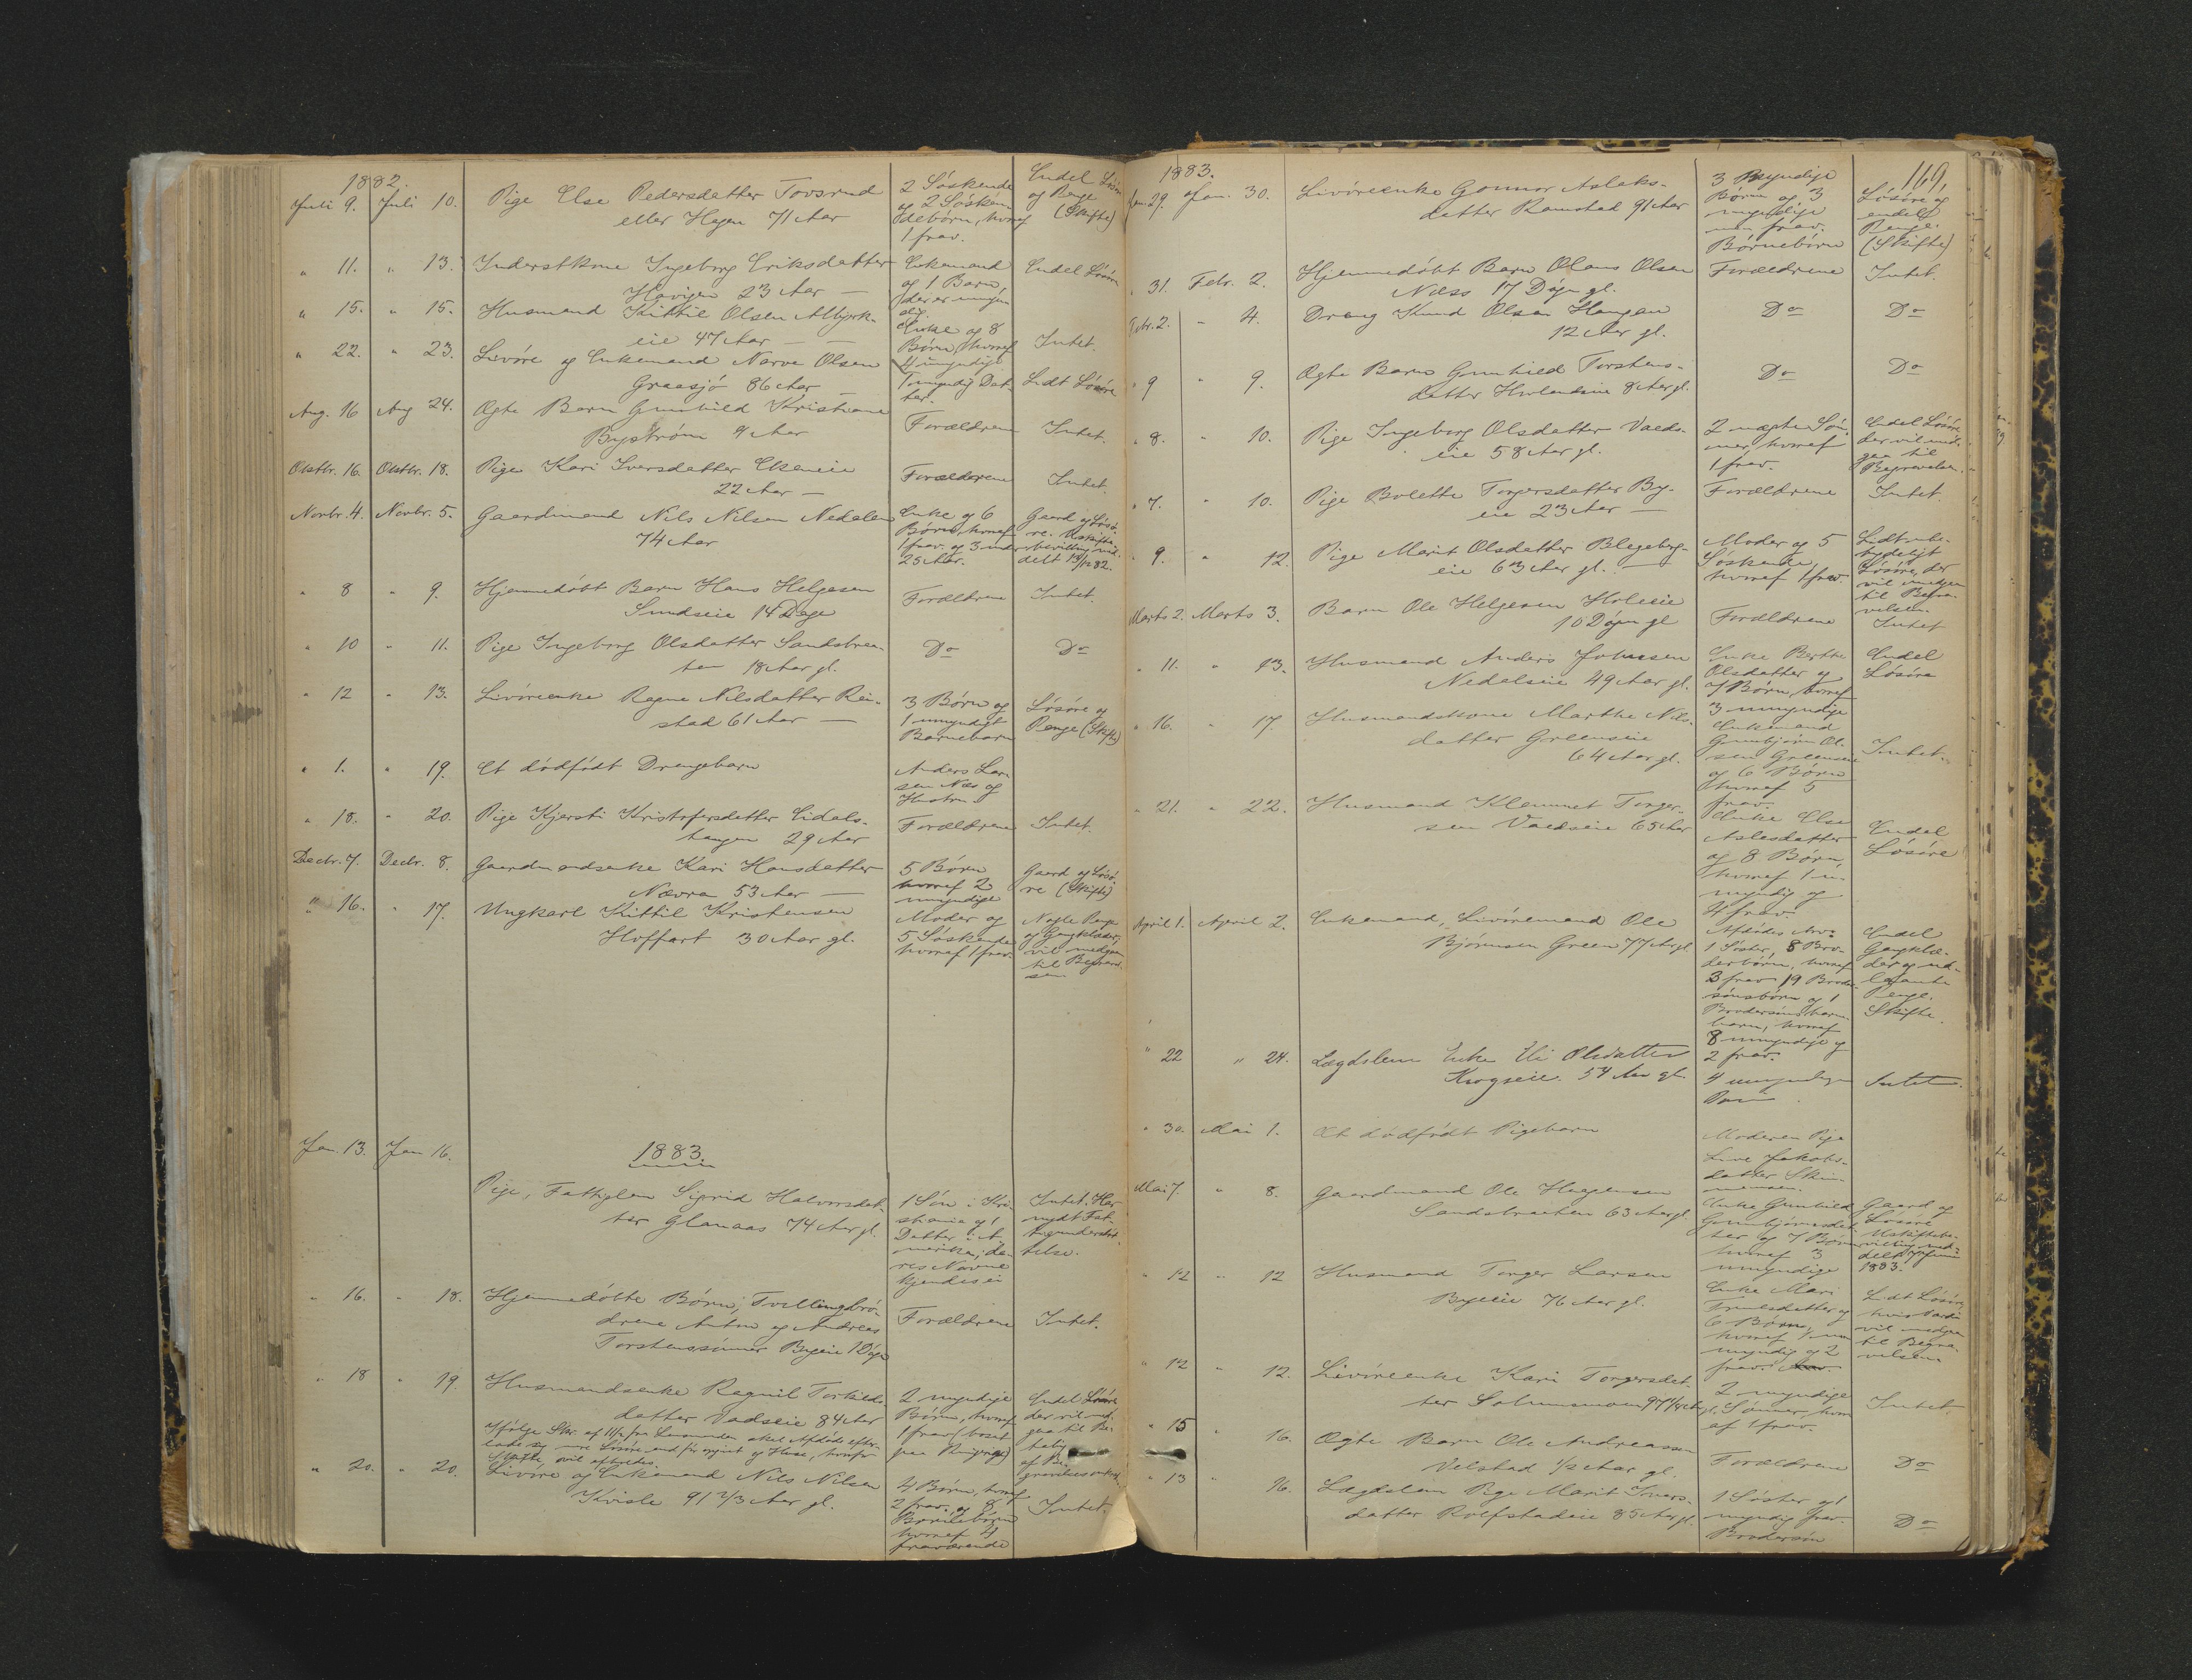 1882.
Juli 9. Juli 10. Pige Else Pedersdatter Tovsrud
eller Hagen 71 Aar
2 Söskende
og 2 Sösken-
debörn, hvoraf
1 frav.
Endel Lösöre
og Penge
(Skifte)
" 11. " 13. Inderstkone Ingeborg Eriksdatter
Havigen 23 Aar —
Enkemand
og 1 Barn,
der er umyn
dig.
Endel Lösöre
" 15. " 15. Husmand Kittil Olsen Albjerk-
eie 47 Aar —
Enke og 8
Börn, hvoraf
4 umyndige
Intet.
" 22. " 23. Livöre og Enkemand Narve Olsen
Graasjö 86 Aar
1 myndig Dat-
ter.
Lidt Lösöre
Aug. 16 Aug 24. Ægte Barn Gunhild Kristiane
Byström 9 Aar
Forældrene
Intet.
Oktbr. 16. Oktbr. 18. Pige Kari Iversdatter Ekeneie
22 Aar —
Forældrene
Intet.
Novbr. 4. Novbr. 5. Gaardmand Nils Nilsen Nedalen
74 Aar
Enke og 6
Börn, hvoraf
1 frav. og 3 under
25 Aar.
Gaard og Lösö-
re. Uskifte-
bevilling med-
delt 13/12 82.
" 8 " 9. Hjemmedöbt Barn Hans Helgesen
Sundseie 14 Dage
Forældrene
Intet.
" 10 " 11. Pige Ingeborg Olsdatter Sandstræe
ten 18 Aar gl.
Do
Do
" 12 " 13. Livöreenke Ragne Nilsdatter Rei-
stad 61 Aar —
3 Börn og
1 umyndigt
Barnebarn
Lösöre og
Penge (Skifte)
" 1. " 19. Et dödfödt Drengebarn
Anders Lar-
sen Næs og
Hustru
" 18. " 20. Pige Kjersti Kristofersdatter Eidals-
haugen 29 Aar
Forældrene
Intet.
Decbr. 7. Decbr. 8. Gaardmandsenke Kari Hansdatter
Nævra 53 Aar —
5 Börn
hvoraf 2
umyndige
Gaard og Lösö-
re (Skifte)
" 16. " 17. Ungkarl Kittil Kristensen
Hoffart 30 Aar gl.
Moder og
5 Söskende
hvoraf 1 frav.
Nogle Penge
og Gangklæder,
vil medgaa
til Begravel-
sen
1883.
Jan. 13. Jan 16.
Pige, Fattiglem Sigrid Halvorsdat-
ter Glanaas 74 Aar gl.
1 Sön i Kri-
stiania og 1
Datter i A-
merika; de-
res Navne
kjendes ei
Intet. Har
nydt Fat-
tigunderstöt-
telse.
" 16. " 18. Hjemmedöbte Börn, Tvillingbrö-
drene Anton og Andreas
Torstenssönner Byeie 1 Dögn
Forældrene
Intet.
" 18 " 19. Husmandsenke Ragnil Torkilds-
datter Vadseie 84 Aar
2 myndige
Börn, hvoraf
1 frav (bosat
paa Ringerige)
Endel Lösöre
der vil med-
gaa til Be-
taling
af Be-
gravelsesomkost
" 20. " 20. Livöre og Enkemand Nils Nilsen
Kvisle 91 2/3 Aar gl.
4 Börn, hvoraf
2 frav. og 8
Börnebörn
hvoraf 4
fraværende
Intet.
1883.
169.
Jan. 29. Jan. 30. Livöreenke Gonnor Aslaks-
datter Ramstad 91 Aar
3 Myndige
Börn og 3
myndige
men frav.
Börnebörn
Lösöre og
endel
Penge.
(Skifte)
" 31. Febr. 2. Hjemmedöbt Barn Olaus Olsen
Næss 17 Dögn gl.
Forældrene
Intet.
Febr. 2. " 4. Dreng Knud Olsen Haugan
12 Aar gl.
Do
Do
" 9 " 9. Ægte Barn Gunhild Torstens-
datter Hvlandeie 8 Aar gl.
Do
Do
" 8. " 10. Pige Ingeborg Olsdatter Vaeds-
eie 58 Aar gl.
2 uægte Sön-
ner, hvoraf
1 frav.
Endel Lösöre
der vil med-
gaa til
Begravelsen.
" 7. " 10. Pige Bolette Torgersdatter By-
eie 23 Aar —
Forældrene
Intet.
" 9. " 12. Pige Marit Olsdatter Blegeberg-
eie 63 Aar gl. —
Moder og 5
Söskende,
hvoraf 1 frav
Lidt ube-
tydeligt
Lösöre, der
vil medgaa
til Begra-
velsen.
Marts 2. Marts 3. Barn Ole Helgesen Holeeie
10 Dögn gl
Forældrene
Intet
" 11. " 13. Husmand Anders Johnssen
Nedalseie 49 Aar gl.
Enke Berthe
Olsdatter og
7 Börn, hvoraf
3 umyndige
Endel
Lösöre
" 16. " 17. Husmandskone Marthe Nils-
datter Greenseie
64 Aar gl.
Enkemand
Gunbjörn Ol-
sen Greenseie
og 6 Börn
hvoraf 5
frav.
Intet.
" 21. " 22. Husmand Klemmet Torger-
sen Vaedseie 65 Aar
Enke Else
Aslesdatter
og 8 Börn,
hvoraf 1 u-
myndig og
4 frav.
Endel
Lösöre
April 1. April 2. Enkemand, Livöremand Ole
Björnsen Green 77 Aar gl
Afdödes Arv:
1 Söster, 8 Bro-
derbörn, hvoraf
3 frav 19 Broder-
sönsbörn og 1
Brodersönsbarns
barn, hvoraf
8 umyndige og
2 frav.
Endel
Gangklæ-
der og ud-
laante
Penge.
Skifte.
" 22 " 24. Lægdslem Enke Eli Olsdatter
Krogseie. 54 Aar gl.
4 umyndige
Börn.
Intet.
" 30. Mai 1. Et dödfödt Pigebarn
Moderen Pige
Live Jakobs-
datter Skin-
Mai 7. " 8. Gaardmand Ole Haagensen
Sandstræeten 63 Aar gl.
Enke Gunhild
Gunbjörnsdat-
ter og 7 Börn
hvoraf 3
umyndige
Gaard og
Lösöre
Uskiftebe-
villing med-
delt Juni
1883.
" 12 " 12 Husmand Torger Larsen
Byeeie 76 Aar gl.
Enke Mari
Truelsdatter og
6 Börn,
hvoraf 1 um
myndig og 2
frav.
Lidt Lösöre,
hvis Værdi
vil medgaa
til Begra-
velsen.
" 12 " 12. Livöreenke Kari Torgersdat-
ter 97 1/4 Aar gl.
2 myndige
Sönner, hvor
af 1 frav.
Intet.
" 15 " 16. Ægte Barn Ole Andreassen
Velstad 1/2 Aar gl.
Forældrene
Do
" 13 " 16. Lægdslem Pige Marit Ivers-
datter Rolfstadeie 85 Aar gl.
1 Söster og 1
myndig frav.
Brodersön
Do